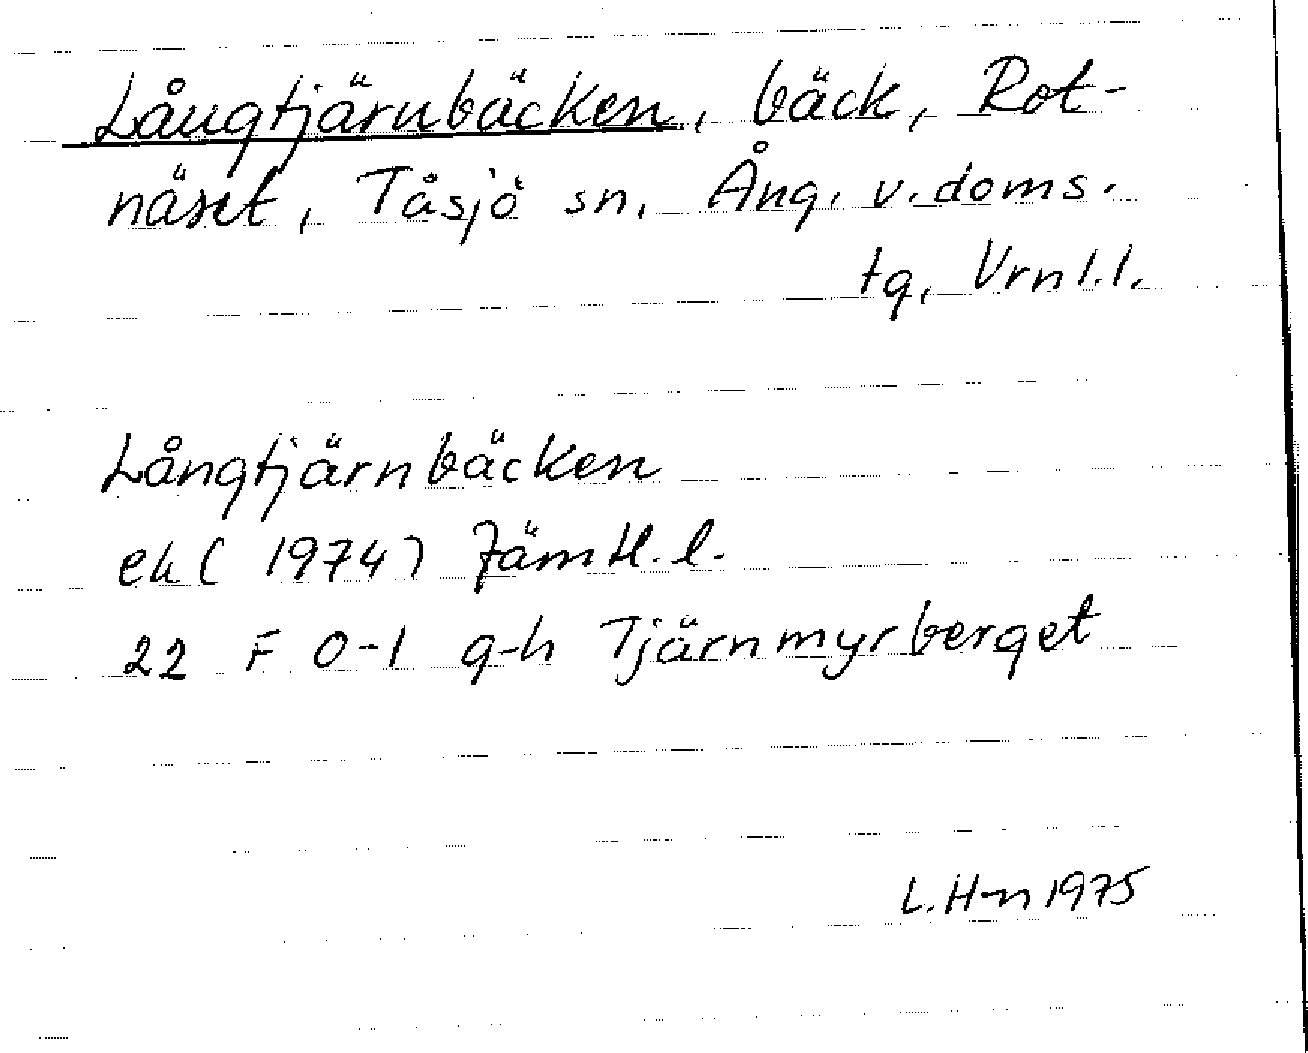 Långtjärnbäcken, bäck, Rot-
näset, Tåsjö sn, Ång. v. doms.
tg, Vrnl.l.
Långtjärnbäcken
ek (1974) Jämtl. l.
22 F 0-1 g-h Tjärnmyrberget
L. H-n 1975